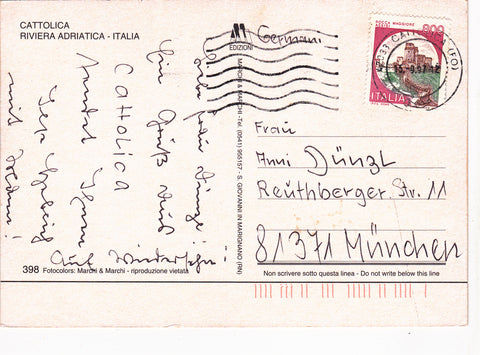 CATTOLICA
RIVIERA ADRIATICA - ITALIA
Liebe Frau Dünzl
Ein Gruß aus
CATTOLICA
sendet Ihnen
Auf Wiedersehn!
398 Fotocolors: Marchi & Marchi - riproduzione vietata
M
EDIZIONI
MARCHI & MARCHI - Tel. (0541) 955157 - S. GIOVANNI IN MARIGNANO (RN)
Germani
ROCCA
MAGGIORE
800
ITALIA
CATTOLICA (FO)
Frau
Anni Dünzl
Reuthberger Str. 11
81371 München
Non scrivere sotto questa linea - Do not write below this line